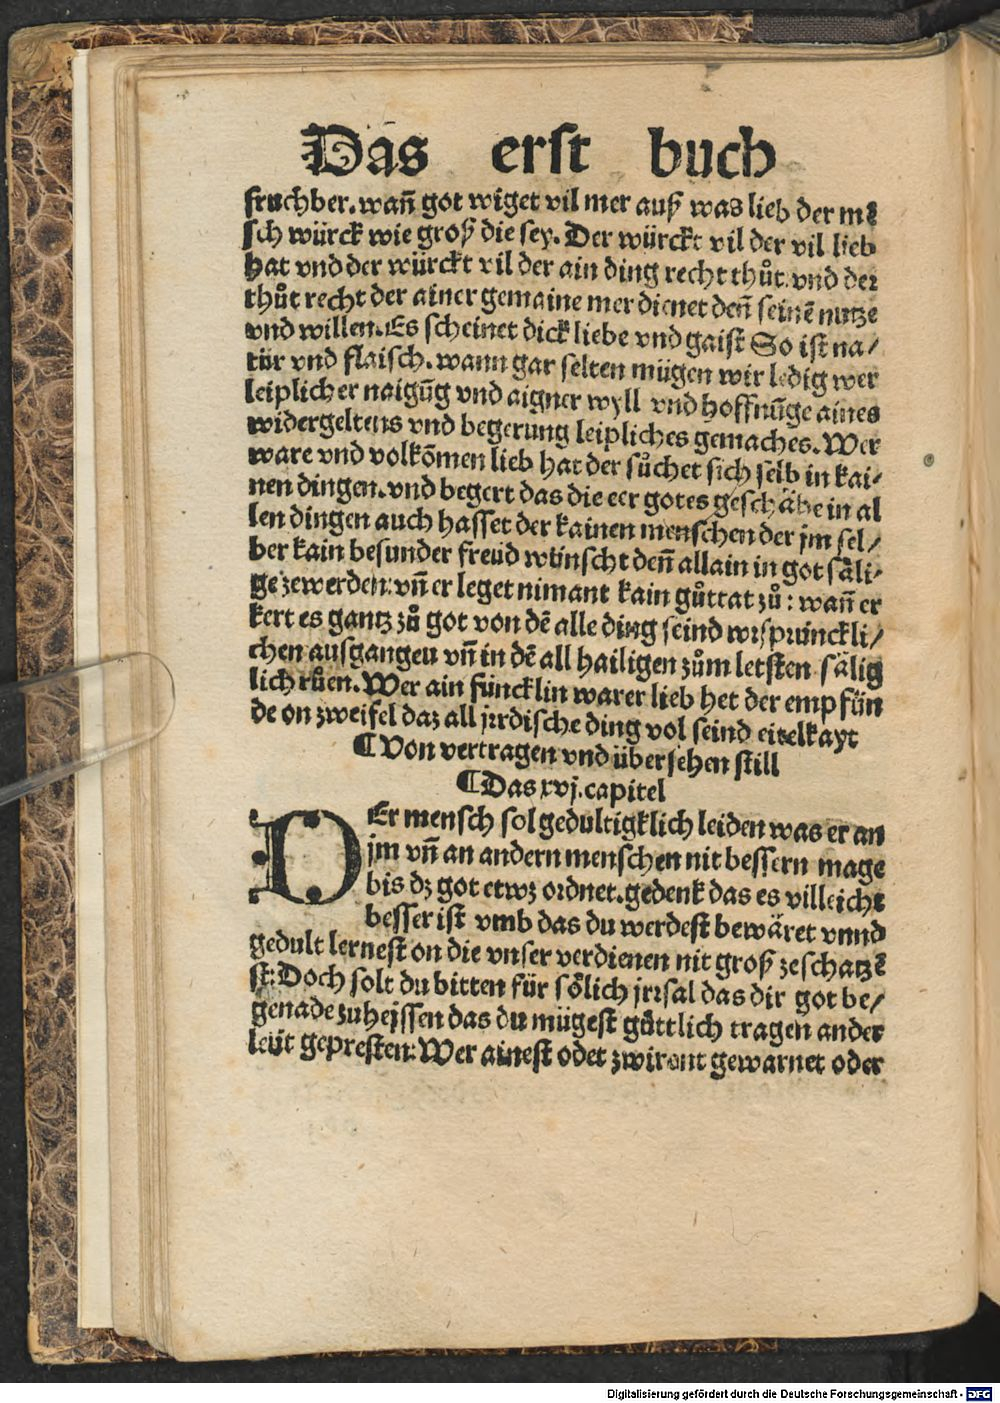 Das erst buch
fruchber. wañ got wiget vil mer auß was lieb der mē
sch würck wie groß die sey. Der würckt vil der vil lieb
hat vnd der würckt vil der ain ding recht thůt. vnd der
thůt recht der ainer gemaine mer dienet deñ seinē nutze
vnd willen. Es scheinet dick liebe vnd gaist So ist na/
tür vnd flaisch. wann gar selten mügen wir ledig wer
leiplicher naigūg vnd aigner wyll vnd hoffnūge aines
widergeltens vnd begerung leipliches gemaches. Wer
ware vnd volkōmen lieb hat der sůchet sich selb in kai/
nen dingen. vnd begert das die eer gotes geschähe in al
len dingen auch hasset der kainen menschen der jm sel/
ber kain besunder freüd wünscht deñ allain in got säli/
ge zewerden: vñ er leget nimant kain gůttat zů: wañ er
kert es gantz zů got von dē alle ding seind vrsprinckli/
chen ausgangen vñ in dē all hailigen zům letsten sälig
lich růen. Wer ain füncklin warer lieb het der empfün
de on zweifel daz all jrrdische ding vol seind eitelkayt
¶ Von vertragen vnd übersehen still
¶ Das xvj. capitel
DEr mensch sol gedultigklich leiden was er an
jm vñ an andern menschen nit bessern mage
bis dz got etwz ordnet. gedenk das es villeicht
besser ist vmb das du werdest bewäret vnnd
gedult lernest on die vnser verdienen nit groß zeschatzē
st: Doch solt du bitten für sölich jrrsal das dir got be/
genade zuhejssen das du mügest gůttlich tragen ander
leüt gepresten: Wer ainest oder zwirent gewarnet oder
Digitalisierung gefördert durch die Deutsche Forschungsgemeinschaft - DFG